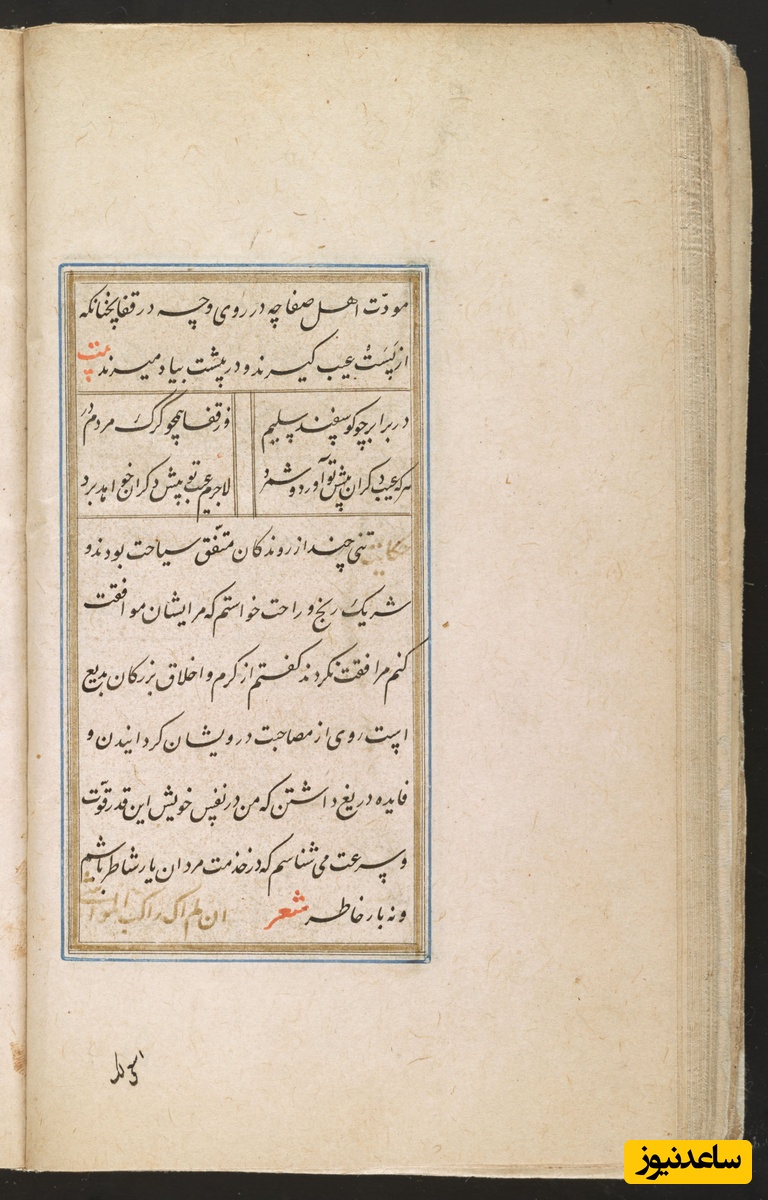 مودّت اهل صفا چه در روی و چه در قفا نچنانکه
از پَسَت عیب گیرند و در پیشت بیاد میرند بیت
در برابر چو گوسفند سلیم در قفا همچو گرگ مردم در
هر که عیب دگران پیش تو آورد و شمرد لاجرم عیب تو پیش دگران خواهد برد
حکایت تنی چند از روندگان متّفق سیاحت بودند و
شریک رنج و راحت خواستم که مرایشان موافقت
کنم مرافقت نکردند گفتم از کرم و اخلاق بزرگان بدیع
است روی از مصاحبت درویشان گردانیدن و
فایده دریغ داشتن که من در نفس خویش این قدر قوّت
و سرعت می شناسم که در خدمت مردان یار شاطر باشم
و نه بار خاطر شعر ان لم اکن راکب المواشی
ساعدنیوز